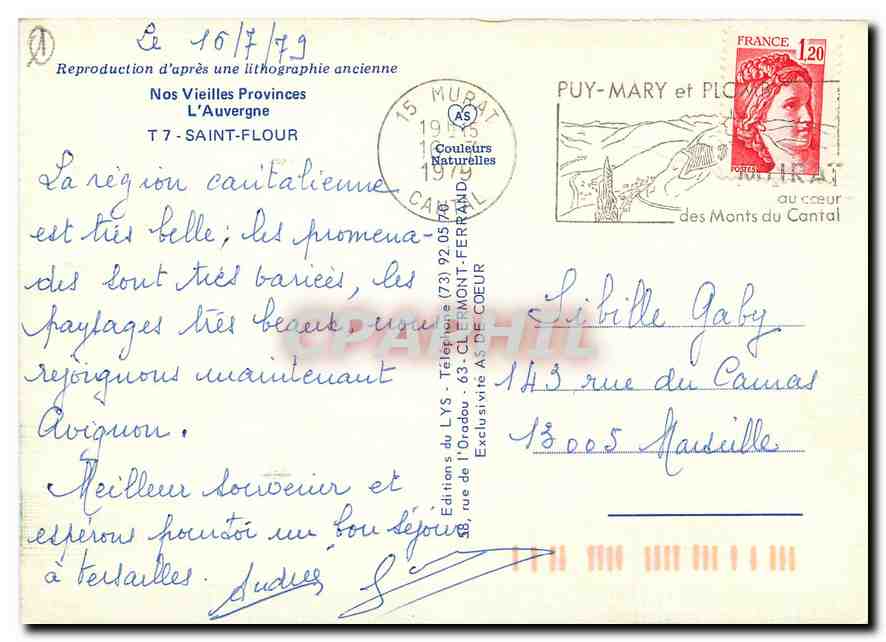 Le 16/7/79
Reproduction d'après une lithographie ancienne
Nos Vieilles Provinces
L'Auvergne
T 7 - SAINT-FLOUR
La région cantalienne
est très belle ; les promena-
des sont très variées, les
paysages très beaux. nous
rejoignons maintenant
Avignon.
Meilleur souvenir et
espérons pour toi un bon séjour
à Versailles. Andrée
AS
Couleurs
Naturelles
15 MURAT
1979
CANTAL
Editions du LYS - Téléphone (73) 92.05.70
38, rue de l'Oradou - 63 - CLERMONT-FERRAND
Exclusivité AS DE COEUR
FRANCE 1,20
POSTES
PUY-MARY et PLOMB
MURAT
au cœur
des Monts du Cantal
Sibille Gaby
143 rue du Camas
13005 Marseille
CPAPHIL